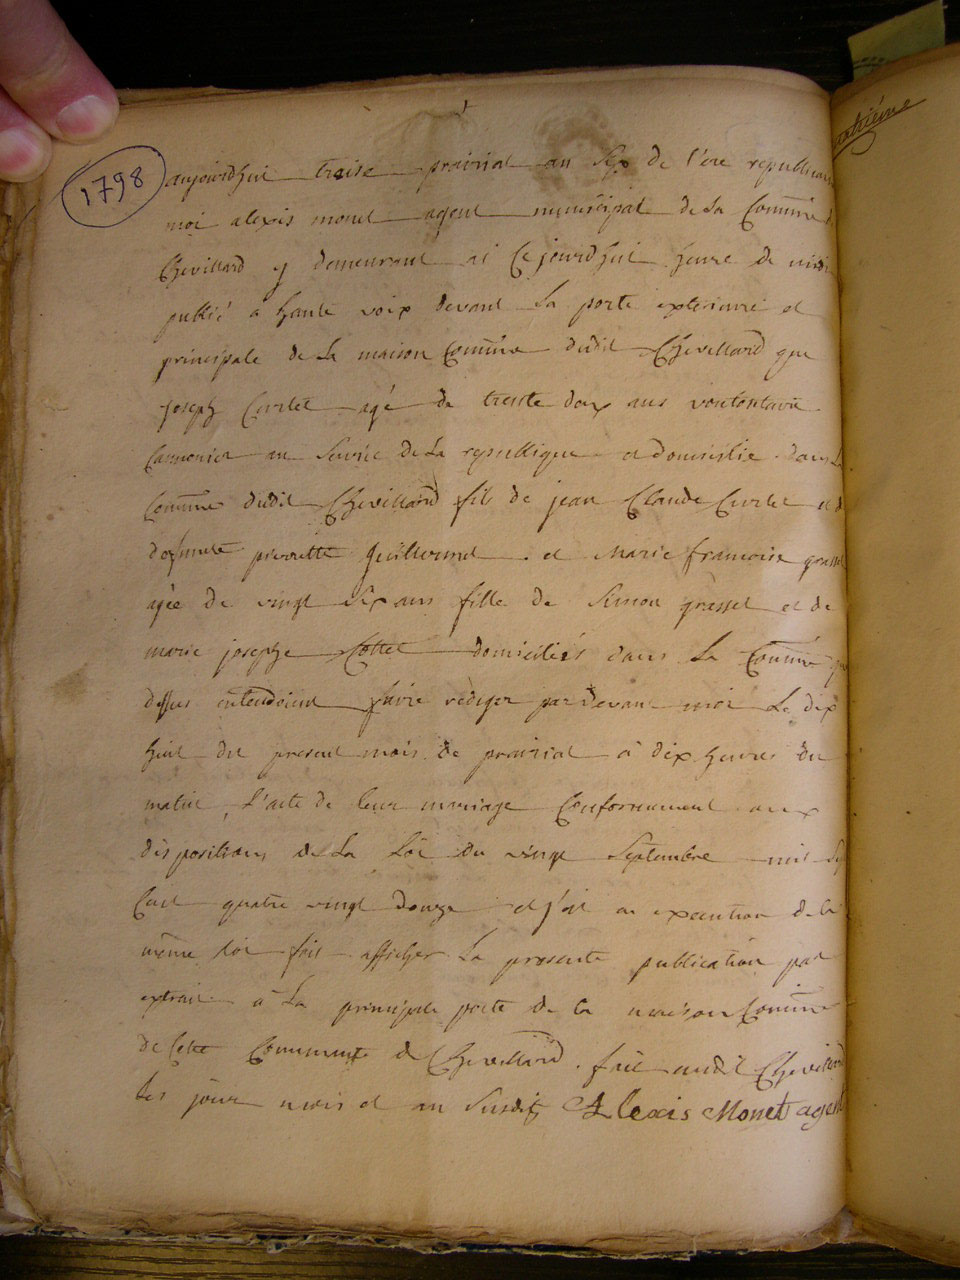 1798
aujourdhui treise prairial an six de l'ere republicaine
moi alexis monet agent municipal de la Commune de
Chevillard y demeurant ai Cejourdhui heure de midi
publié a haute voix devant la porte exterieure et
principale de la maison Comune dudit Chevillard que
joseph Curlet agé de trente deux ans vontontaire
Cannonier au service de la republique et domicilie dans la
Commune dudit Chevillard fils de jean Claude Curlet et de
defunte pierrette Guillermet et Marie francoise grasset
agée de vingt six ans fille de Simon grasset et de
marie josephe Cottet domiciliés dans la Commune que
dessus entendoient faire rediger par devant moi le dix
huit du present mois de prairial a dix heures du
matin l'acte de leur mariage Conformement aux
dispositions de la Loi du vingt Septembre mil sept
Cent quatre vingt douze et j'ai en execution de la
même loi fait afficher la presente publication par
extrait a la principale porte de la maison Comune
de Cette Commune de Chevillard. fait audit Chevillard
les jour mois et an susdit Alexis Monet agent